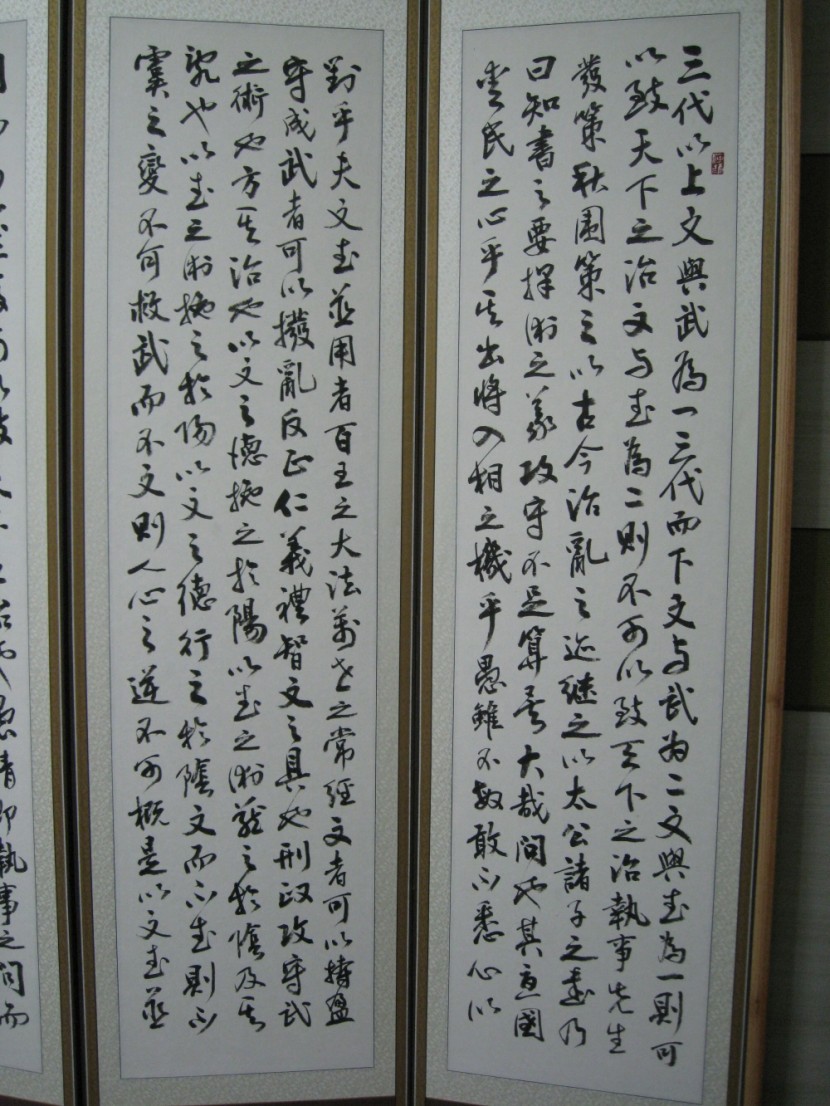 三代以上文與武為一三代而下文与武为二文與武為一則可
以致天下之治文与武為二則不可以致天下之治執事先生
發策秋圍策之以古今治亂之迹継之以太公諸子之
曰知書之要擇術之義攻守不足算矣大哉問也其
民之心乎其出將入相之機乎愚雖不敏敢不悉心以
對乎夫文武並用者百王之大法萬世之常經文者可以持盈
守成武者可以撥亂反正仁義禮智文之具也刑政攻守武
之術也方其治也以文之德施之於陽以武之術藏之於陰及其
亂也以武之術施之於陽以文之德行之於陰文而不武則不
之變不可救武而不文則人心之逆不可概是以文武並
執事之問而